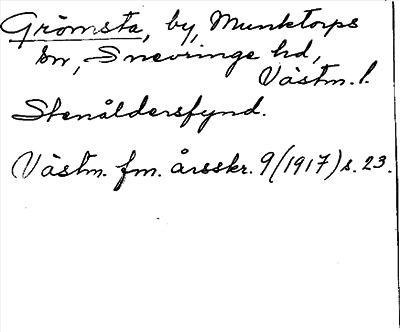 Grömsta, by, Munktorps
sn, Snevringe hd,
Västm. l.
Stenåldersfynd.
Västm. fm. årsskr. 9 (1917) s. 23.